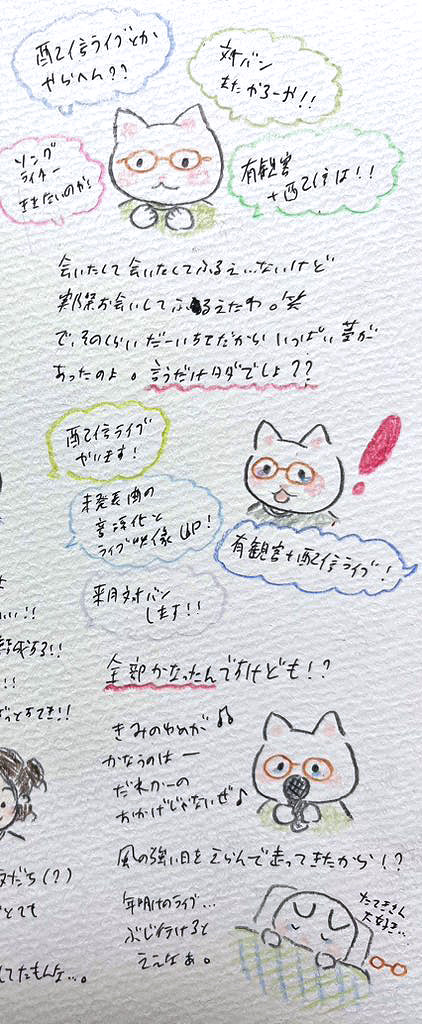 配信ライブとか
やらへん??
対バン
またやろーか!!
ソング
ライナー
ききたいのか!
有観客
+配信は!!
会いたくて会いたくてふるえ…ないけど
実際お会いしてふるえたわ。笑
で、そのくらいだーいすてだからいっぱい夢が
あったのよ。言うだけタダでしょ??
配信ライブ
やります!
未発表曲の
音源化と
ライブ映像UP!
有観客+配信ライブ!
来月対バン
します!!
全部かなったんですけども!?
きみのゆめが
かなうのは ー
だれかーの
おかげじゃないぜ♪
風の強い日をえらんで走ってきたから!?
年明けのライブ…
ぶじ行けると
ええなぁ。
大好き…
!!
ぱっとすてき!!
だち(?)
とても
してたもんな…。